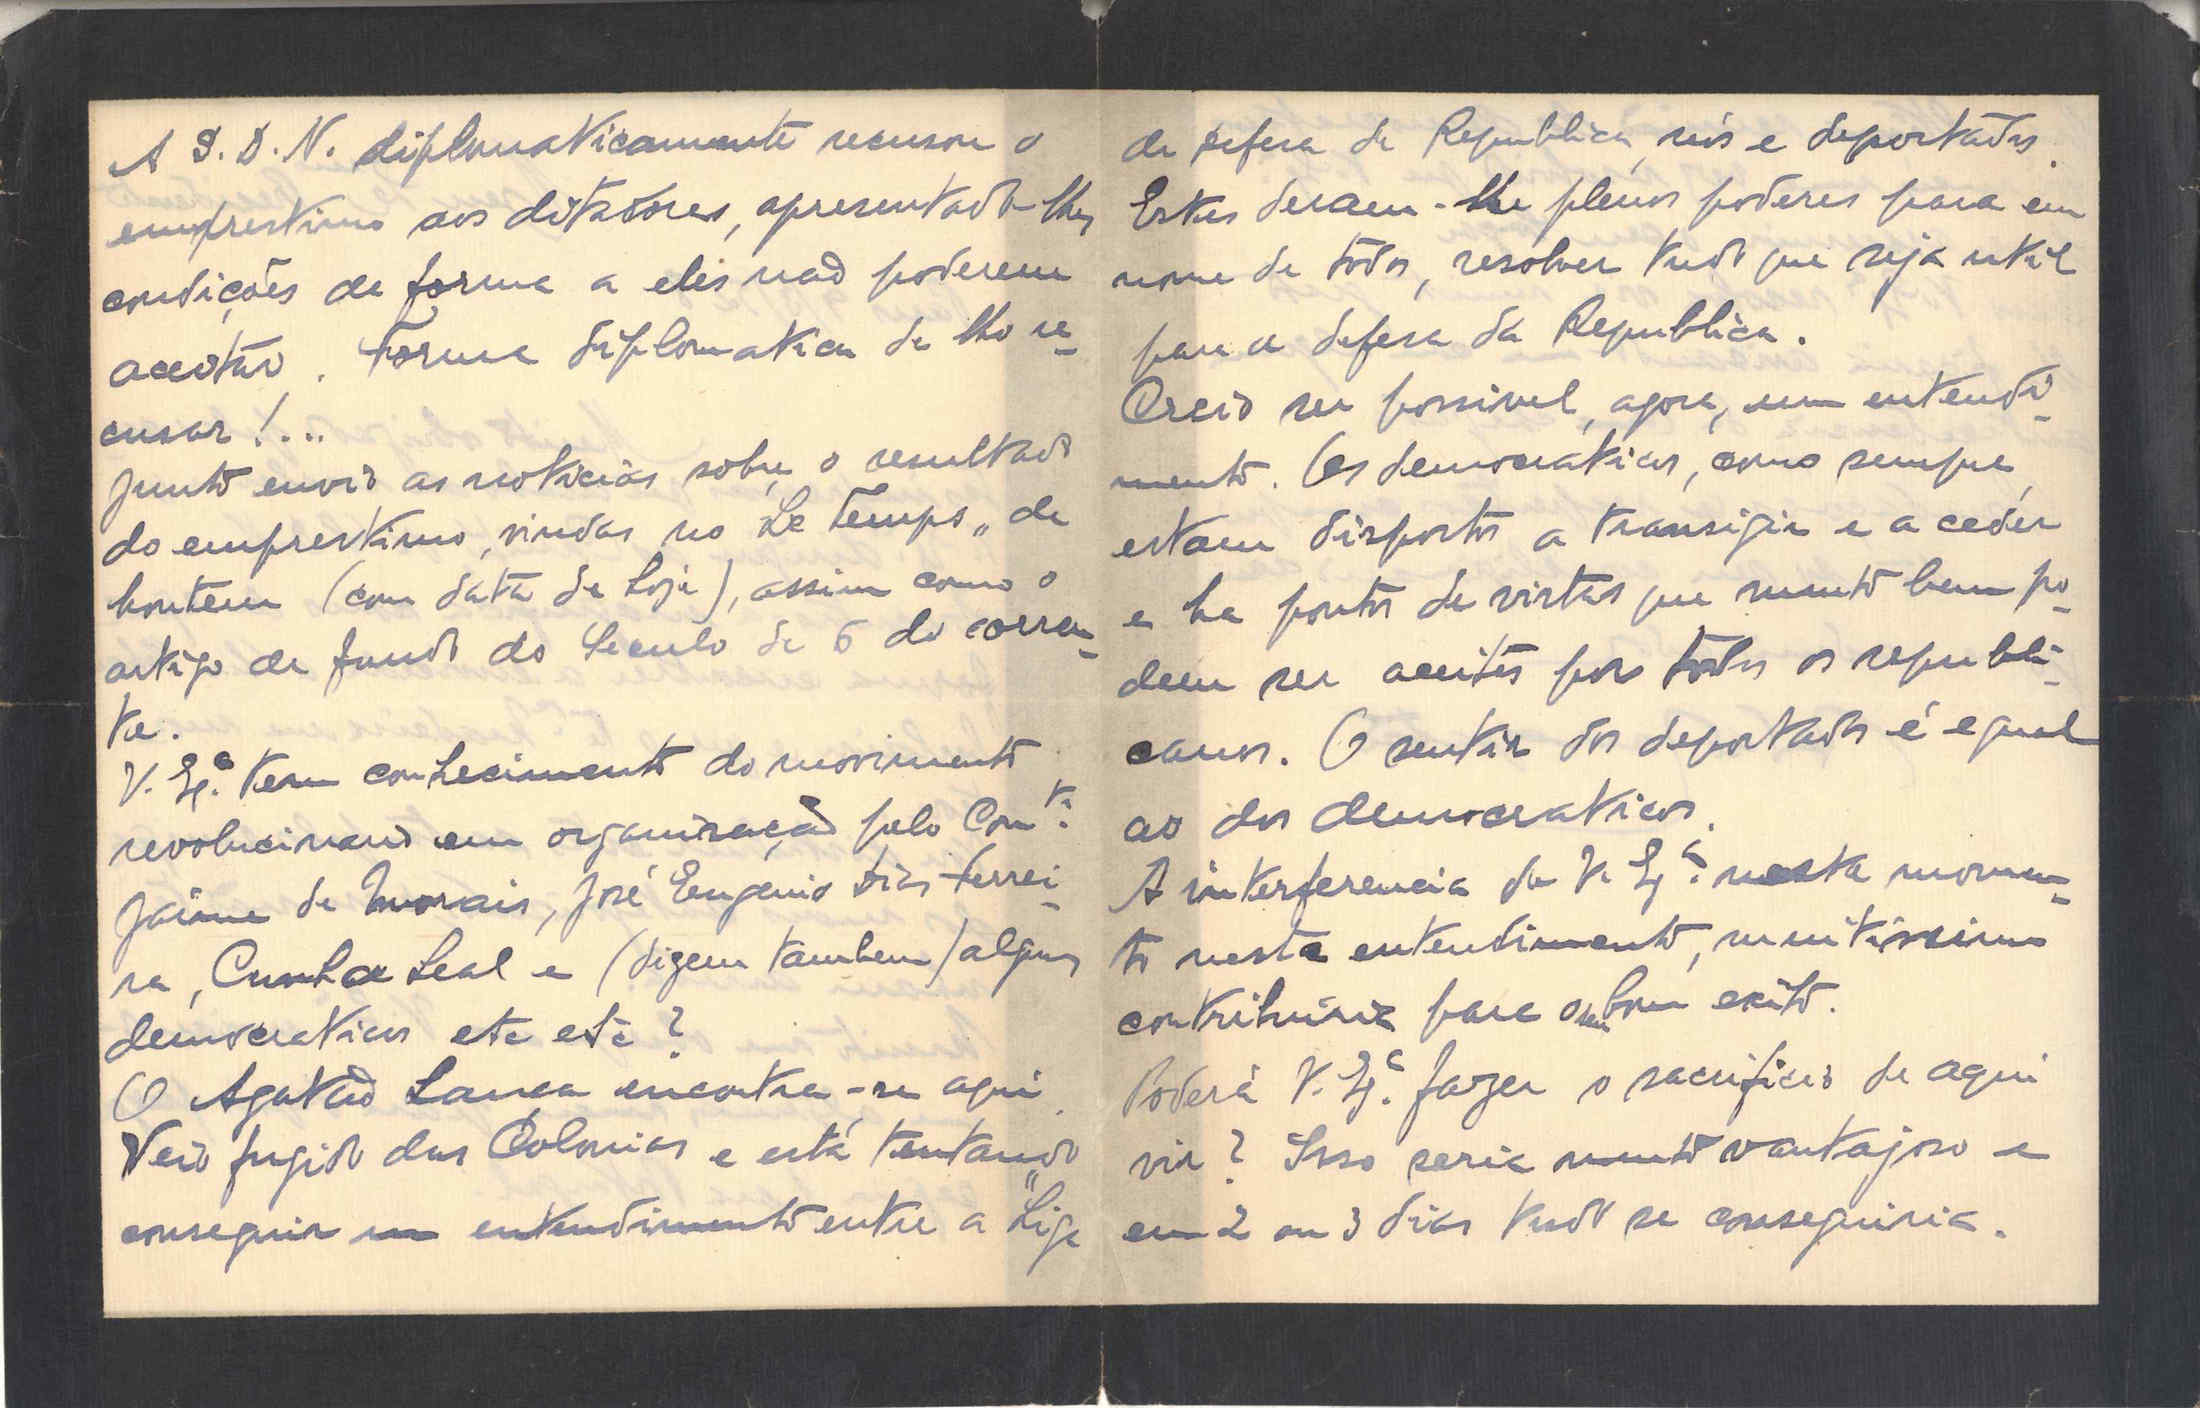 A S. D. N. diplomaticamente recusou o
emprestimo aos ditadores, apresentado-lhes
condições de forma a eles não poderem
aceitar. Forma diplomatica de lho re-
cusar!...
Junto envio as noticias sobre o resultado
do emprestimo, vindas no Le Temps" de
hontem (com data de hoje), assim como o
artigo de fundo do Seculo de 6 do corren-
te.
V. Exª. tem conhecimento do movimento
revolucinario em organisação pelo Com.te
Jaime de Morais, José Eugenio Dias Ferrei-
ra, Cunha Leal e (dizem tambem) alguns
democraticos etc etc?
O Agatão Lança encontra-se aqui.
Veio fugido das Colonias e está tentando
conseguir um entendimento entre a "Liga
de Defesa da Republica, nós e deportados.
Estes deram-lhe plenos poderes para em
nome de todos, resolver tudo que seja util
para a defesa da Republica.
Creio ser possivel, agora, um entendi-
mento. Os democraticos, como sempre,
estam dispostos a transigir e a ceder
e ha pontos de vistas que muito bem po-
dem ser aceites por todos os republi-
canos. O sentir dos deportados é egual
ao dos democraticos.
A interferencia de V. Exª. nesta momen-
to neste entendimento, muitissimo
contribuiria para o seu bom exito.
Poderá V. Exª. fazer o sacrificio de aqui
vir? Isso seria muito vantajoso e
em 2 ou 3 dias tudo se conseguiria.